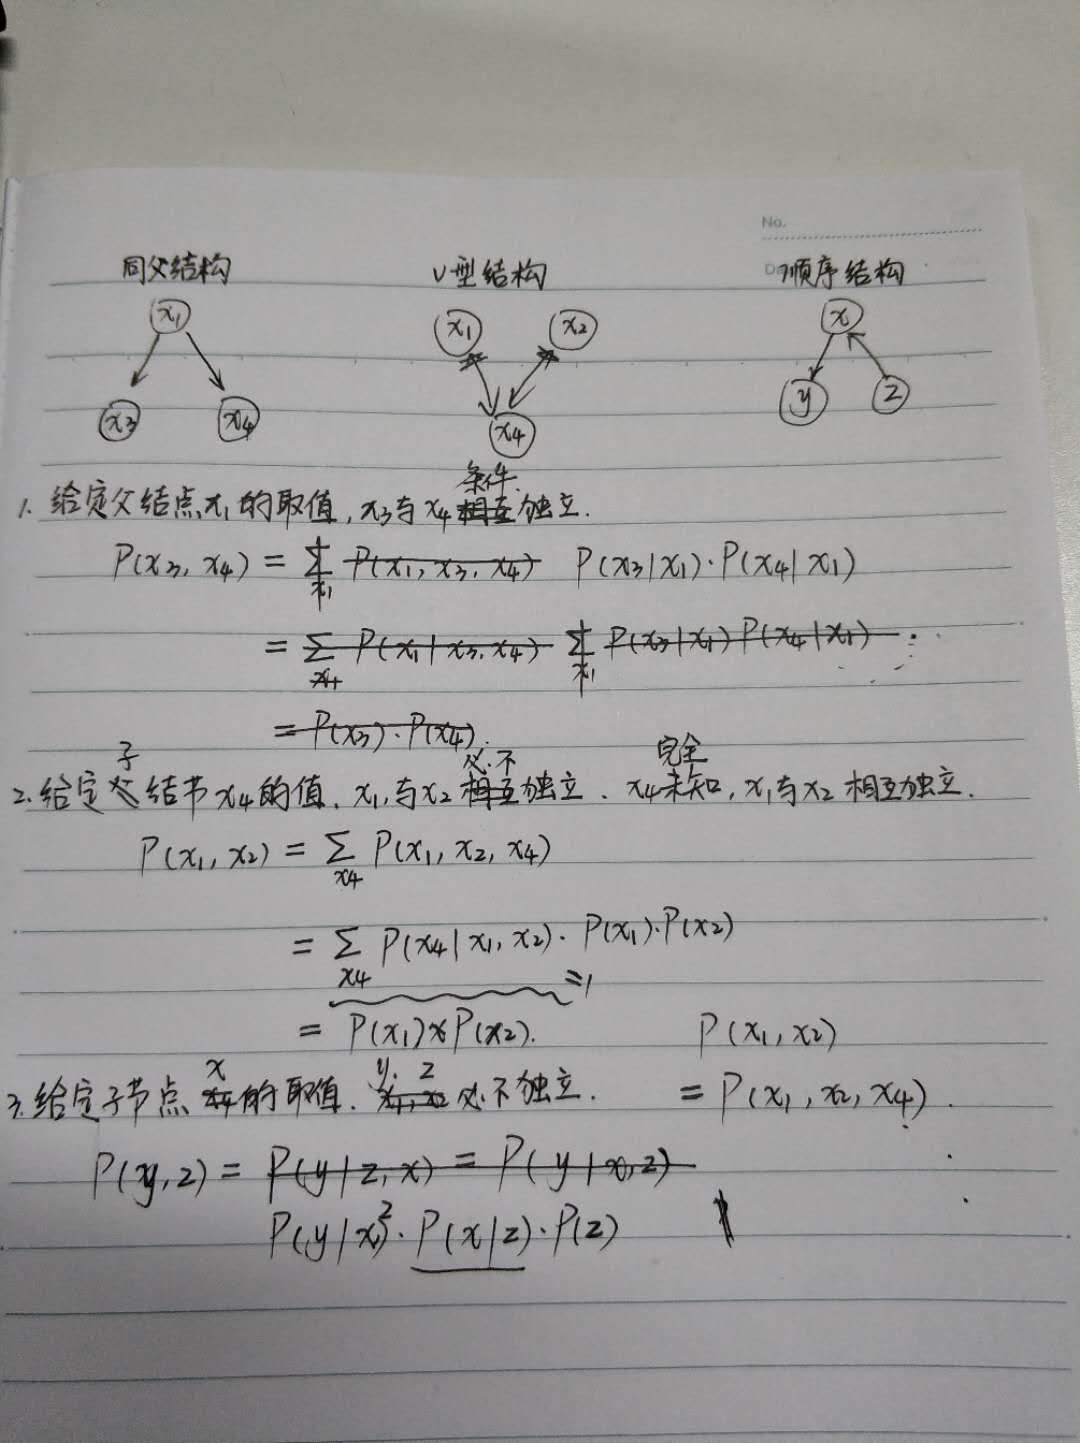 No.
同父结构 V型结构 顺序结构
x₁ x₁ x₂ x
x₃ x₄ x₄ y z
条件
1. 给定父结点x₁的取值,x₃与x₄相互独立.
P(x₃, x₄) = Σ P(x₁, x₃, x₄) P(x₃|x₁)·P(x₄|x₁)
x₁
= Σ P(x₁|x₃, x₄) Σ P(x₃|x₁) P(x₄|x₁)
x₄ x₁
= P(x₃)·P(x₄).
子 必不 完全
2. 给定父结节x₄的值,x₁与x₂相互独立. x₄未知,x₁与x₂相互独立.
P(x₁, x₂) = Σ P(x₁, x₂, x₄)
x₄
= Σ P(x₄|x₁, x₂)·P(x₁)·P(x₂)
x₄ =1
= P(x₁)×P(x₂). P(x₁, x₂)
x y, z
3. 给定子节点x₄的取值. x₁, x₂必不独立. = P(x₁, x₂, x₄).
P(y, z) = P(y|z, x) = P(y|x, z)
P(y|x)·P(x|z)·P(z)